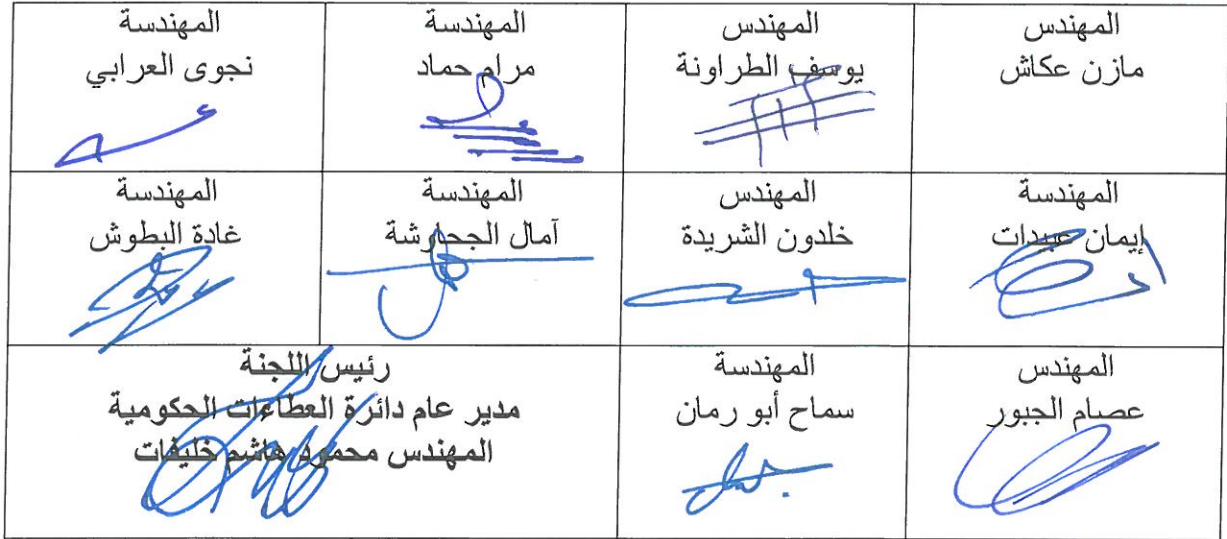 المهندس
مازن عكاش
المهندس
يوسف الطراونة
المهندسة
مرام حماد
المهندسة
نجوى العرابي
المهندسة
إيمان عبيدات
المهندس
خلدون الشريدة
المهندسة
آمال الجحاوشة
المهندسة
غادة البطوش
المهندس
عصام الجبور
المهندسة
سماح أبو رمان
رئيس اللجنة
مدير عام دائرة العطاءات الحكومية
المهندس محمود هاشم خليفات